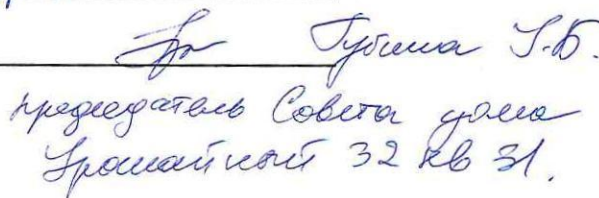 Губина Г.Б.
председатель Совета дома
Урожайный 32 кв 31.